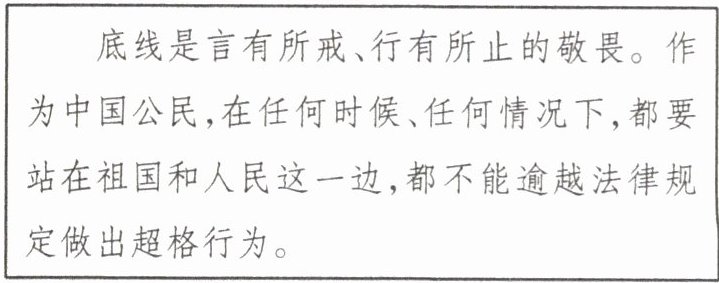 底线是言有所戒、行有所止的敬畏。作
为中国公民,在任何时候、任何情况下,都要
站在祖国和人民这一边,都不能逾越法律规
定做出超格行为。